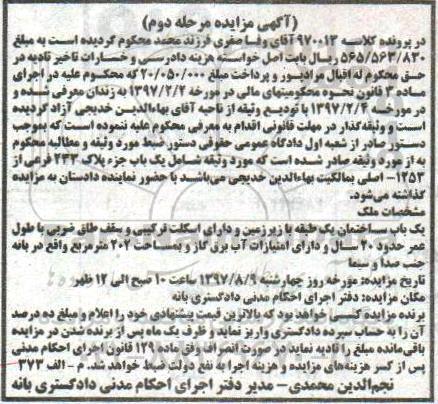 (آگهی مزایده مرحله دوم)
در پرونده کلاسه ۹۷۰۰۱۳ آقای وفا صفری فرزند محمد محکوم گردیده است به مبلغ
۵۶۵/۵۶۳/۸۳۰ ریال بابت اصل خواسته هزینه دادرسی و خسارات تاخیر تادیه در
حق محکوم له اقبال مرادپور و پرداخت مبلغ ۲۰/۰۵۰/۰۰۰ که محکوم علیه در اجرای
ماده ۳ قانون نحوه محکومیتهای مالی در مورخه ۱۳۹۷/۲/۲ به زندان معرفی شده و
در مورخه ۱۳۹۷/۲/۴ با تودیع وثیقه از ناحیه آقای بهاءالدین خدیجی آزاد گردیده
است و وثیقه‌گذار در مهلت قانونی اقدام به معرفی محکوم علیه ننموده است که بموجب
دستور صادر از شعبه اول دادگاه عمومی حقوقی دستور ضبط مورد وثیقه و مطالبه محکوم
به از مورد وثیقه صادر شده است که مورد وثیقه شامل یک باب جزء پلاک ۲۳۳ فرعی از
۱۲۵۳- اصلی بمالکیت بهاءالدین خدیجی می‌باشد با حضور نماینده دادستان به مزایده
گذاشته می‌شود.
مشخصات ملک
یک باب ساختمان یک طبقه با زیرزمین و دارای اسکلت ترکیبی و سقف طاق ضربی با طول
عمر حدود ۲۰ سال و دارای امتیازات آب برق گاز و بمساحت ۲۰۲ مترمربع واقع در بانه
جنب صدا و سیما
تاریخ مزایده: مورخه روز چهارشنبه ۱۳۹۷/۸/۹ ساعت ۱۰ صبح الی ۱۲ ظهر
مکان مزایده: دفتر اجرای احکام مدنی دادگستری بانه
برنده مزایده کسی خواهد بود که بالاترین قیمت پیشنهادی خود را اعلام و مبلغ ده درصد
آن را به حساب سپرده دادگستری واریز نماید و ظرف یک ماه پس از برنده شدن در مزایده
باقی‌مانده مبلغ را تادیه نماید در صورت انصراف وفق ماده ۱۲۹ قانون اجرای احکام مدنی
پس از کسر هزینه‌های مزایده و هزینه اجرا به نفع دولت ضبط خواهد شد. م - الف ۳۷۳
نجم‌الدین محمدی- مدیر دفتر اجرای احکام مدنی دادگستری بانه